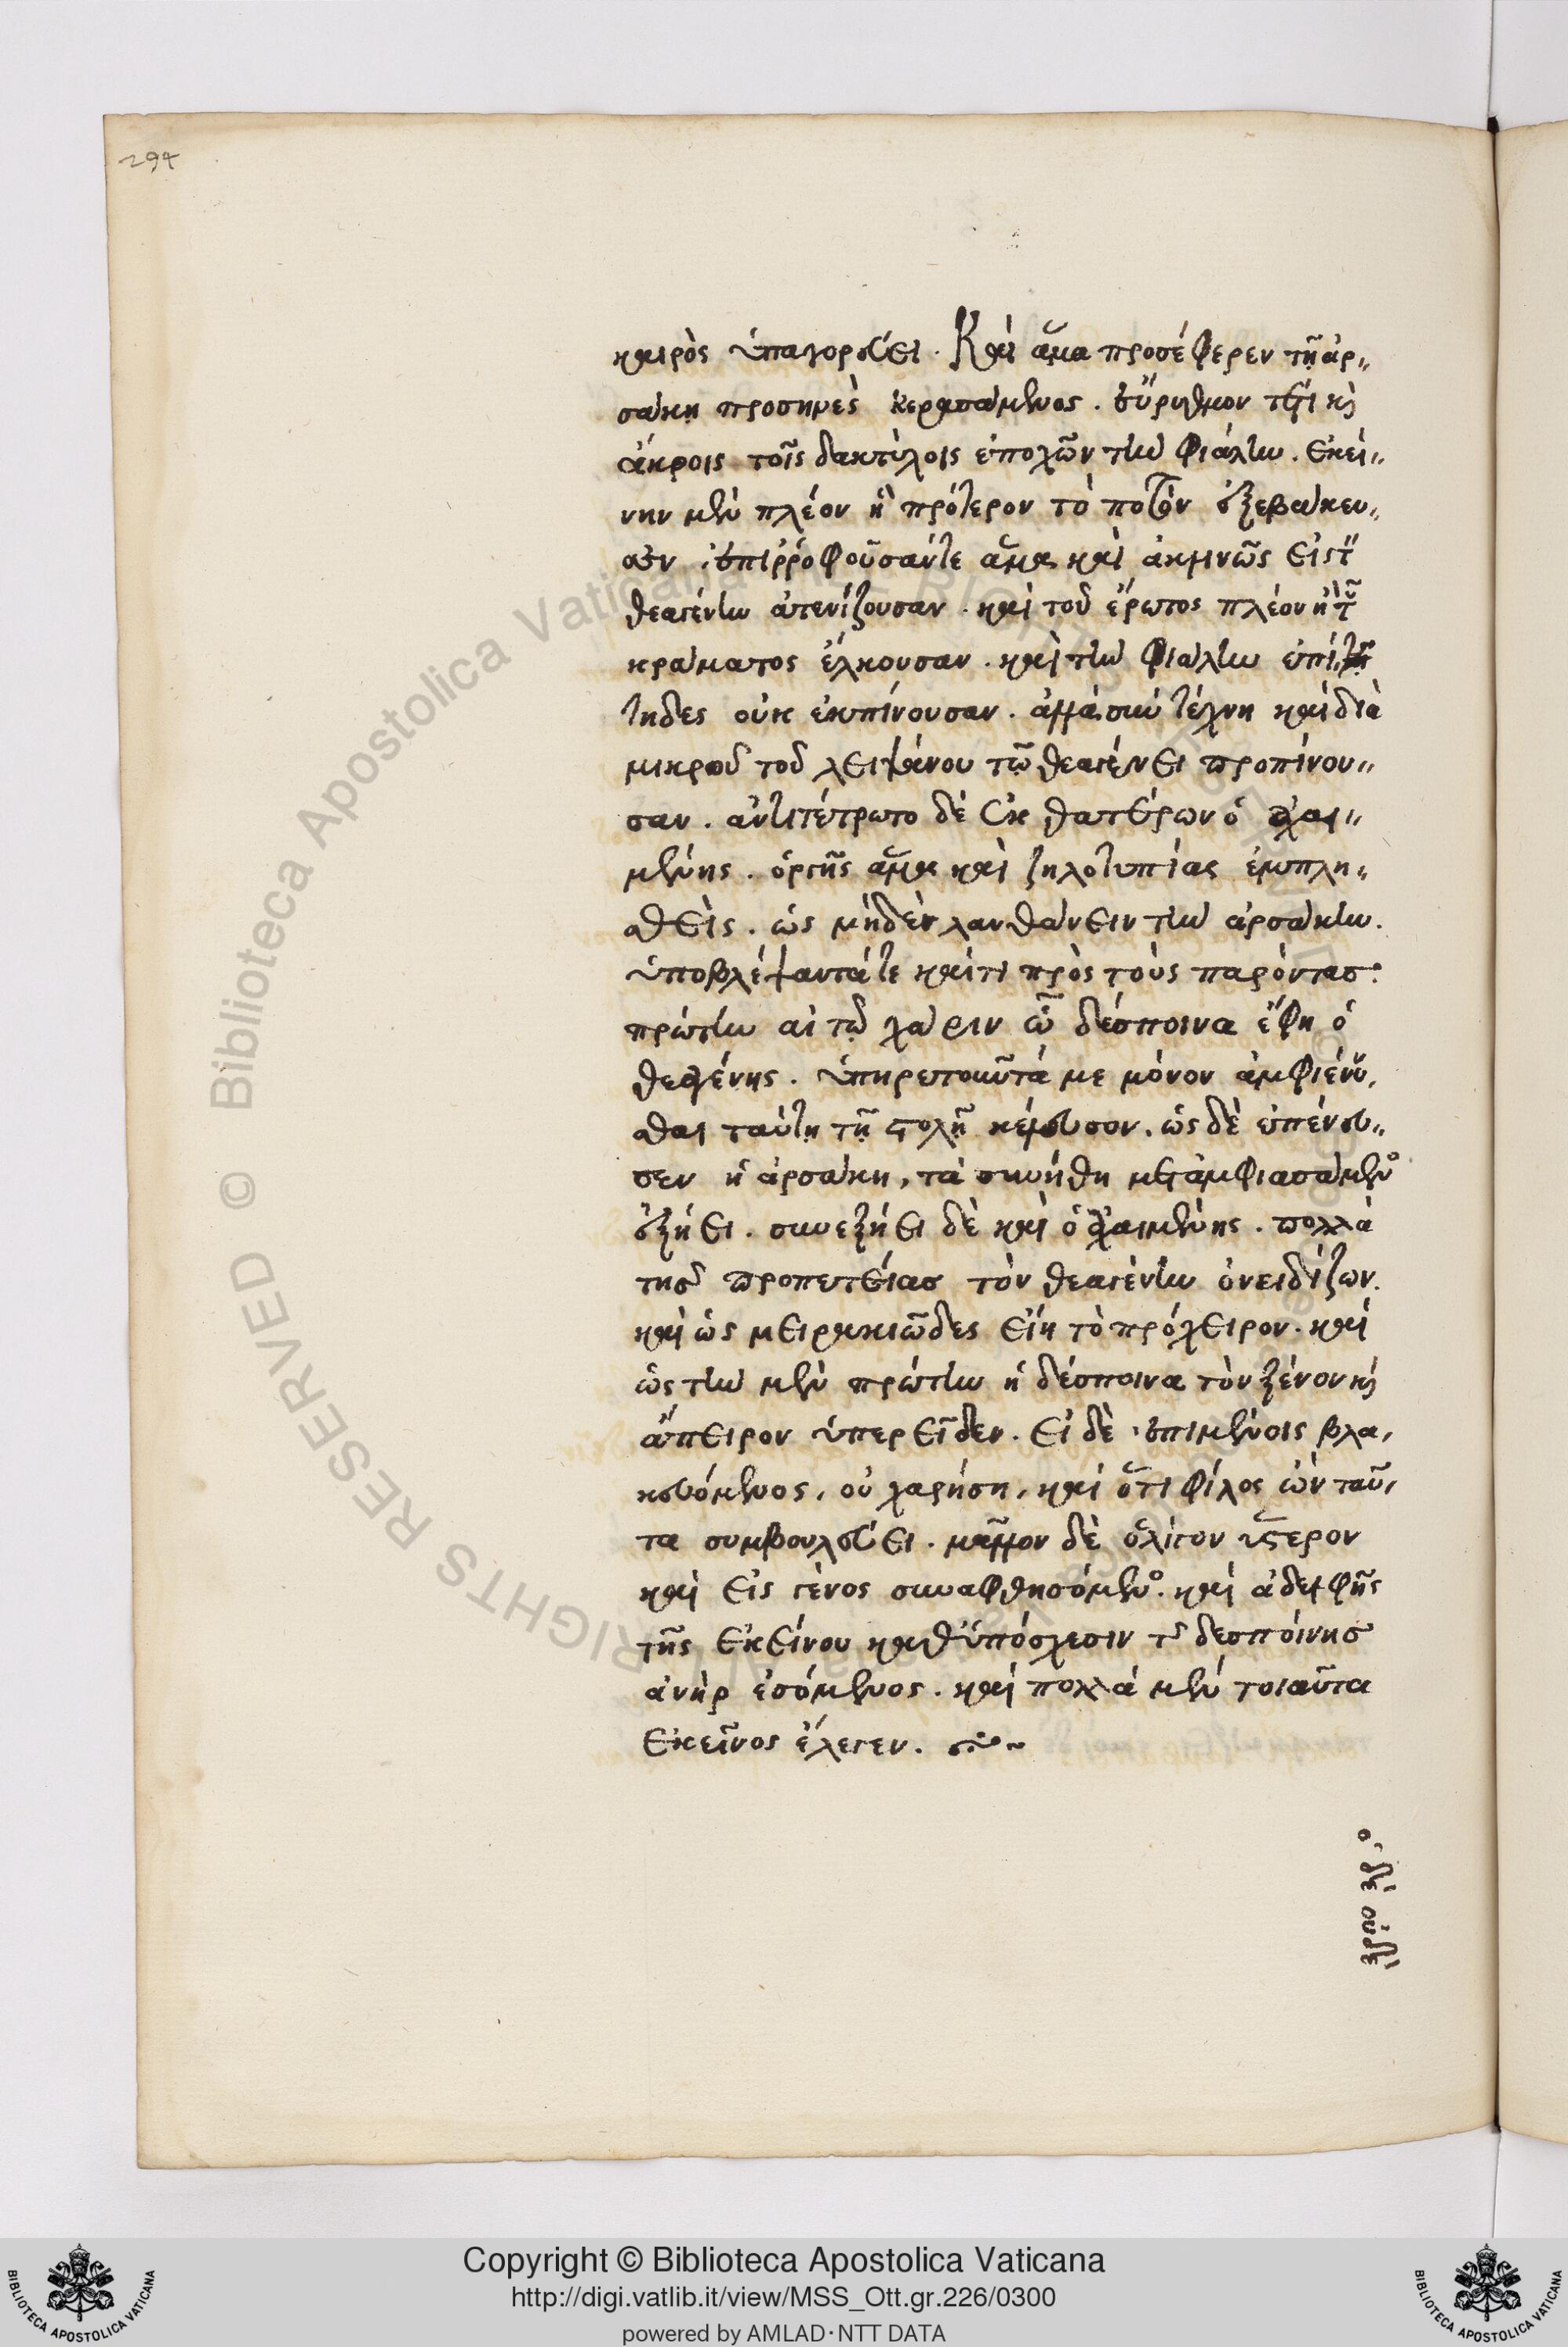 294
καιρὸς ὑπαγορεύει. Καὶ ἅμα προσέφερεν τῆ ἀρ,,
σάκη προσηνὲς κερασάμενος. εὔρυθμόν τι κὶ
ἄκροις τοῖς δακτύλοις ἐποχῶν τὴν φιάλην. ἐκεί,,
νην μὲν πλέον ἢ πρότερον τὸ ποτὸν ἐξεβάκχευ,,
σεν ἐπιρροφοῦσάν τε ἅμα καὶ ἀκλινῶς εἰς τ
θεαγένην ἀτενίζουσαν. καὶ τοῦ ἔρωτος πλέον ἢ τ
κράματος ἕλκουσαν. καὶ τὴν φιάλην ἐπί,,
τηδες οὐκ ἐκπίνουσαν. ἀλλὰ σὺν τέχνη καὶ διὰ
μικροῦ τοῦ λειψάνου τῶ θεαγένει προπίνου,,
σαν. ἀντιτέτρωτο δὲ ἐκ θατέρων ὁ ἀχαι,,
μένης. ὀργῆς ἅμα καὶ ζηλοτυπίας ἐμπλη,,
σθεὶς. ὡς μηδὲν λανθάνειν τὴν ἀρσάκην.
ὑποβλέψαντά τε καί τι πρὸς τοὺς παρόντας.
πρώτην αἰτῶ χάριν ὦ δέσποινα ἔφη ὁ
θεαγένης. ὑπηρετοῦντά με μόνον ἀμφιέννυ,
σθαι ταύτη τῆ στολῆ κέλευσον. ὡς δὲ ἐπένευ,,
σεν ἡ ἀρσάκη, τὰ συνήθη μεταμφιασάμενο
ἐξήει. συνεξήει δὲ καὶ ὁ ἀχαιμένης. πολλὰ
τῆς προπετείας τὸν θεαγένην ὀνειδίζων.
καὶ ὡς μειρακιῶδες εἴη τὸ πρόχειρον. καὶ
ὡς τὴν μὲν πρώτην ἡ δέσποινα τὸν ξένον κὶ
ἄπειρον ὑπερεῖδεν. εἰ δὲ ἐπιμένοις βλα,
κευόμενος, οὐ χαιρήση, καὶ ὅτι φίλος ὢν ταῦ,
τα συμβουλεύει. μᾶλλον δὲ ὀλίγον ὕστερον
καὶ εἰς γένος συναφθησόμενο. καὶ ἀδελφῆς
τῆς ἐκείνου καθ' ὑπόσχεσιν τ δεσποίνης
ἀνὴρ ἐσόμενος. καὶ πολλὰ μὲν τοιαῦτα
ἐκεῖνος ἔλεγεν.
Copyright © Biblioteca Apostolica Vaticana
http://digi.vatlib.it/view/MSS_Ott.gr.226/0300
powered by AMLAD·NTT DATA